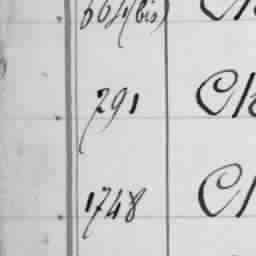 664(bis) Ch
791 Ch
1748 Ch